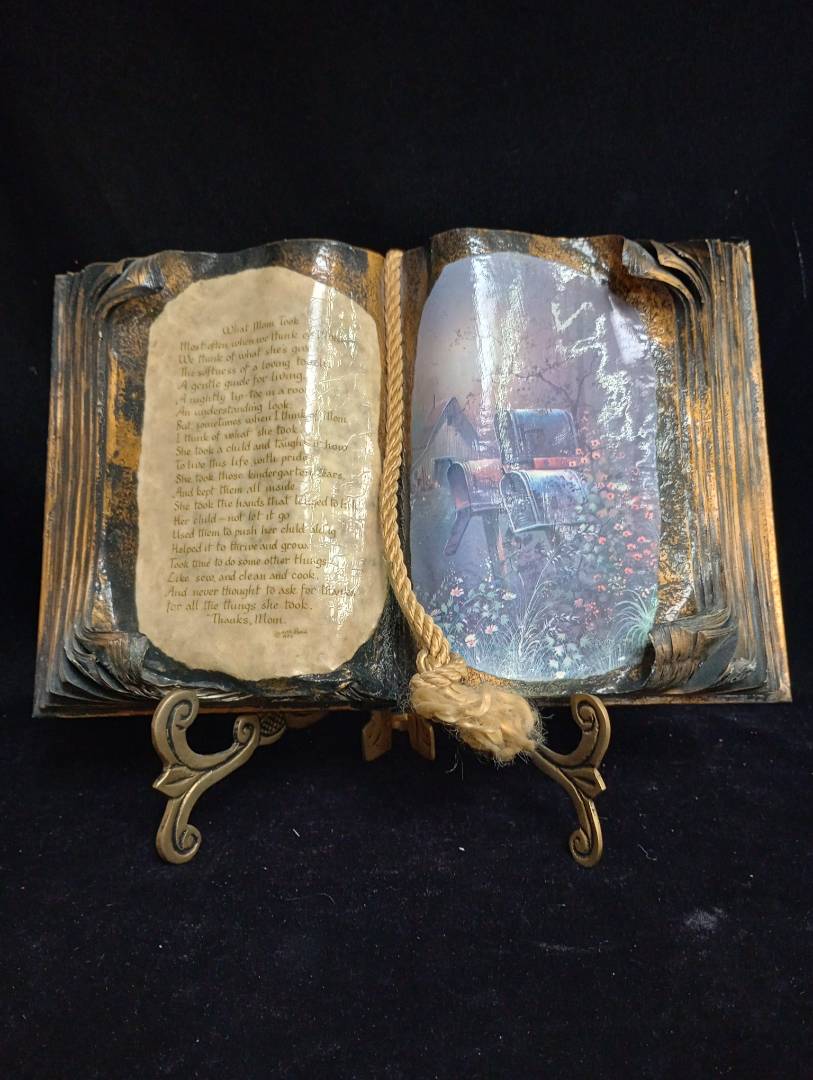 What Mom Took
Most often, when we think of
We think of what she's
The softness of a loving touch,
A gentle guide for living,
A nightly tip-toe in a room
An understanding look.
But sometimes when I think of Mom
I think of what she took.
She took a child and taught it how
To live this life with pride
She took those kindergarten tears
And kept them all inside
She took the hands that longed to
Her child—not let it go
Used them to push her child along
Helped it to thrive and grow.
Took time to do some other things,
Like sew, and clean and cook,
And never thought to ask for thanks,
for all the things she took.
"Thanks, Mom.